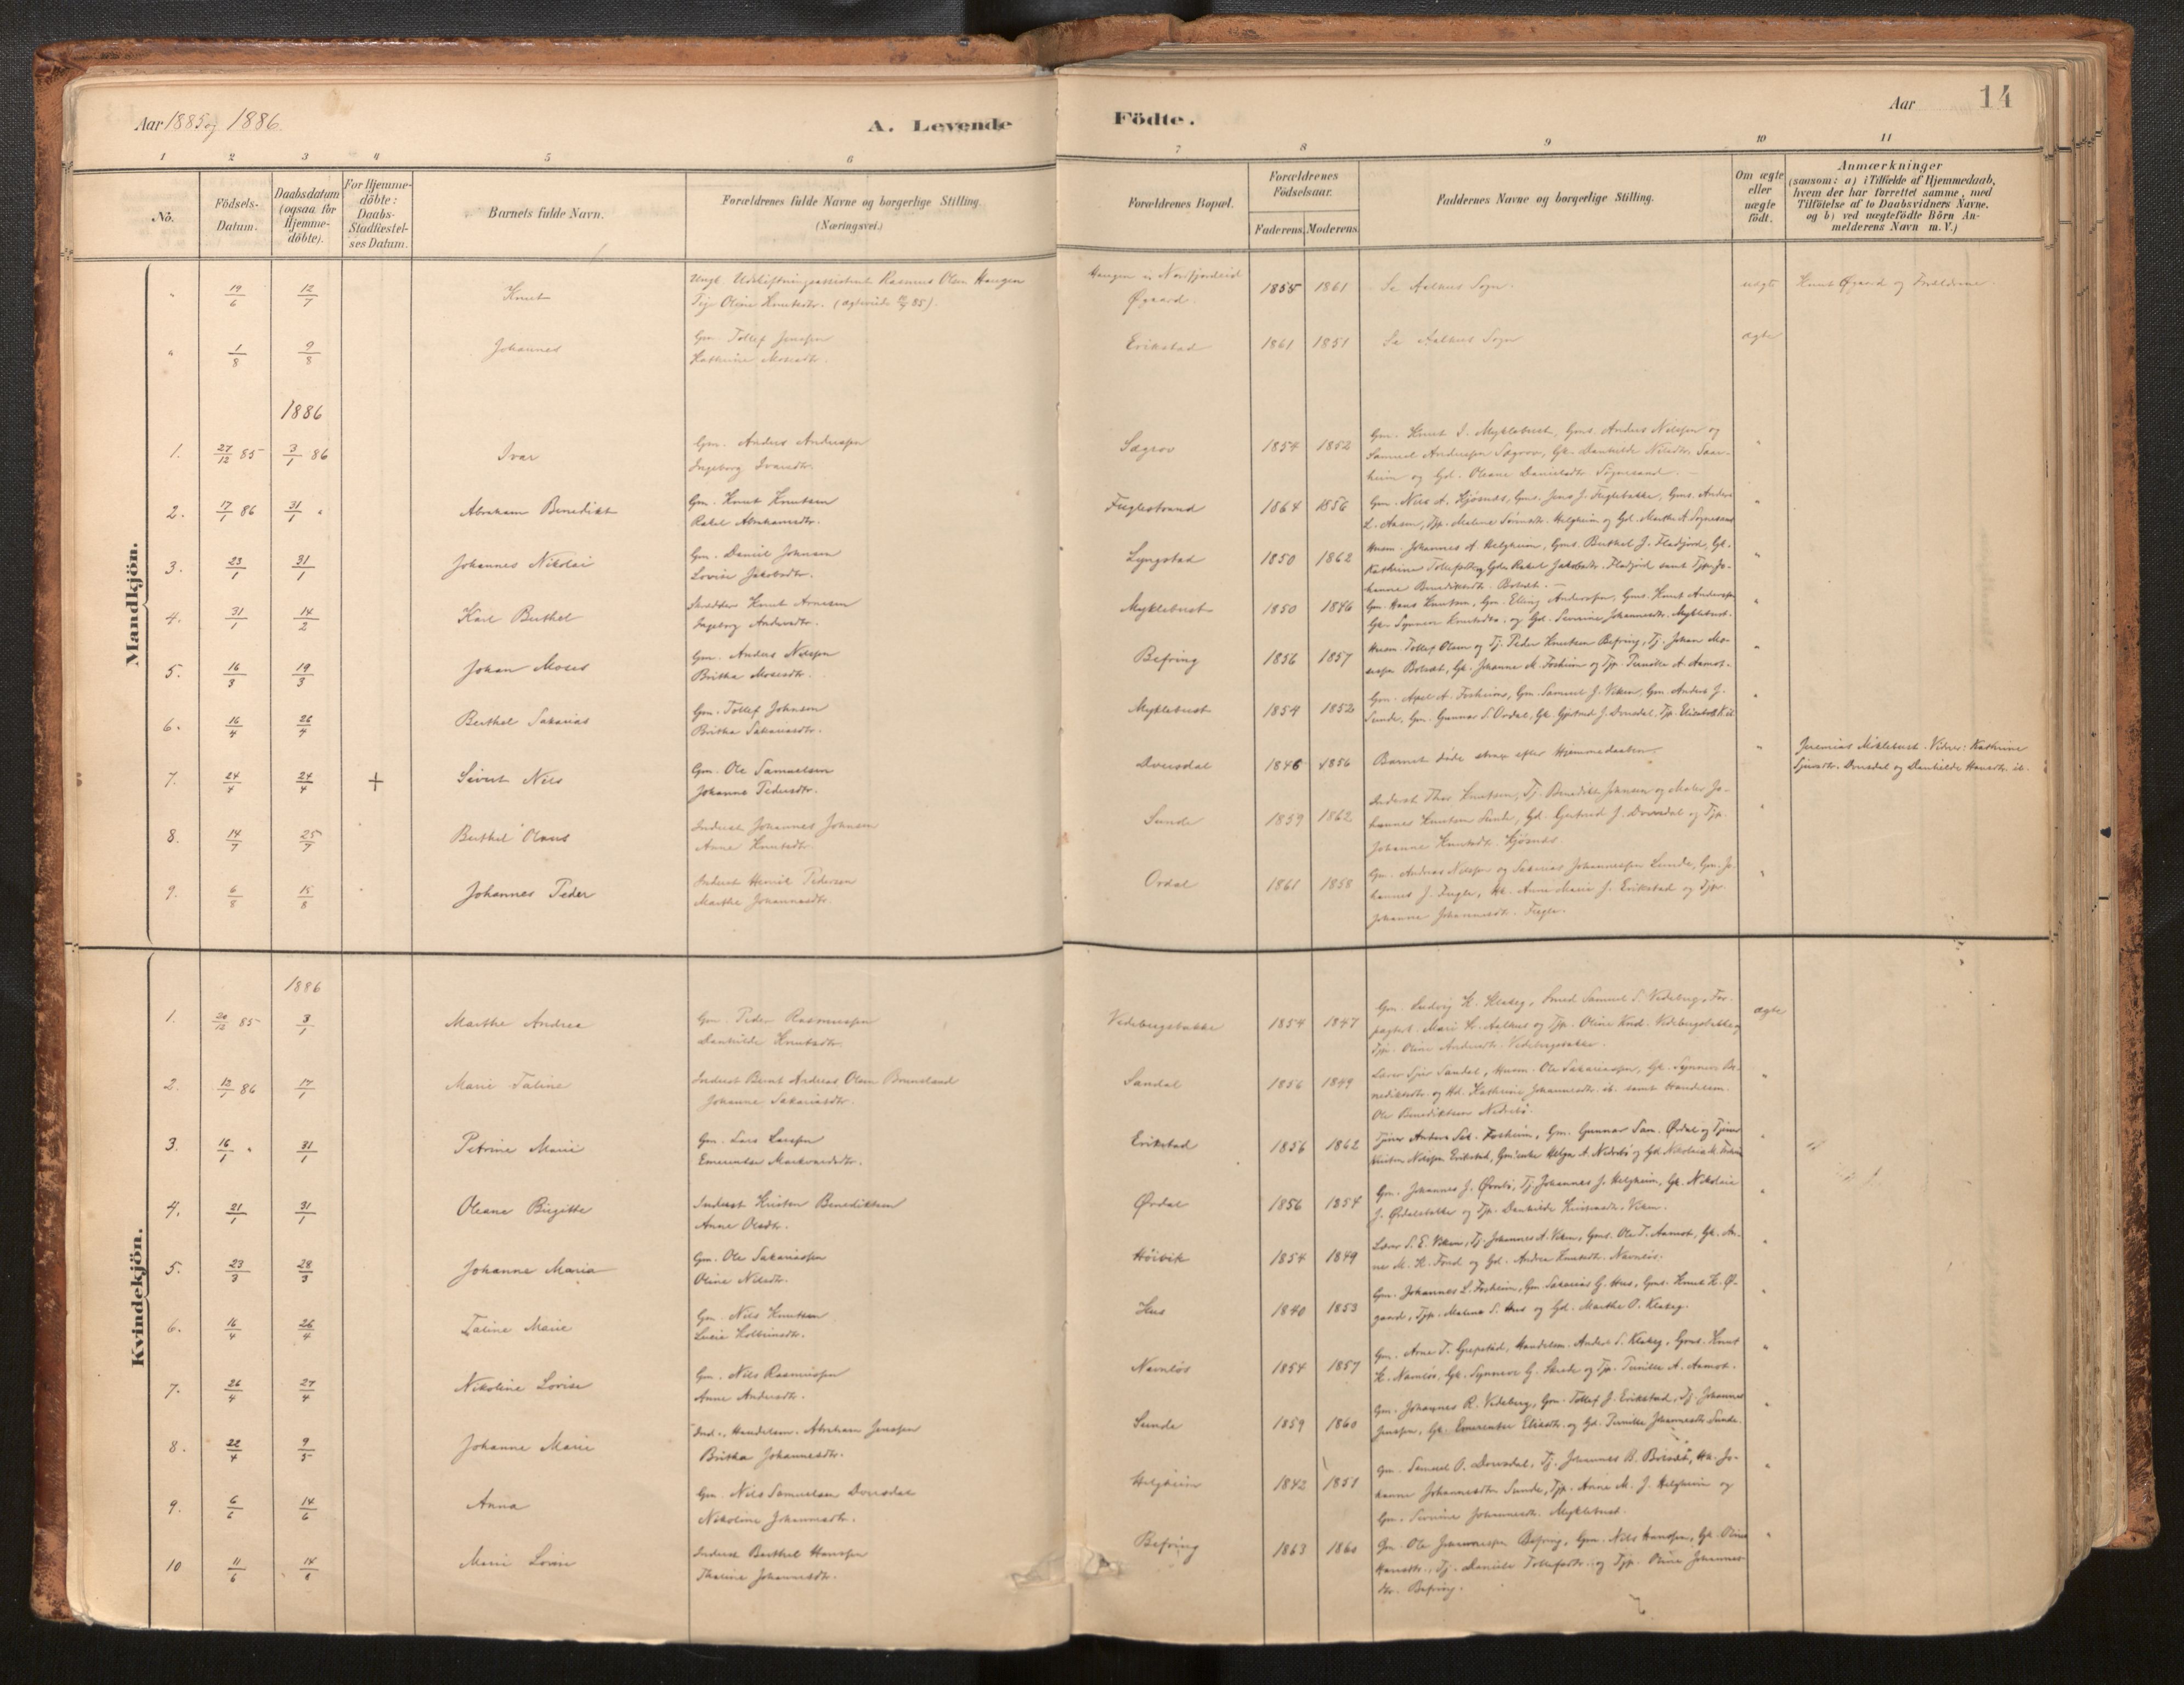 Aar 1885 og 1886.
A. Levende
Födte.
Aar
14
1 2 3 4 5 6 7 8 9 10 11
No.
Födsels-
Datum.
Daabsdatum
(ogsaa for
Hjemme-
döbte).
For Hjemme-
döbte:
Daabs-
Stadfæstel-
ses Datum.
Barnets fulde Navn.
Forældrenes fulde Navne og borgerlige Stilling.
(Næringsvei.)
Forældrenes Bopæl.
Forældrenes
Födselsaar.
Faderens. Moderens.
Faddernes Navne og borgerlige Stilling.
Om ægte
eller
uægte
födt.
Anmærkninger
(saasom: a) i Tilfælde af Hjemmedaab,
hvem der har forrettet samme, med
Tilföielse af to Daabsvidners Navne.
og b) ved uægtefödte Börn An-
melderens Navn m. V.)
Mandkjön.
" 19/6 12/7 Knut
Ungk. Udskiftningsassistent Rasmus Olsen Haugen
Pige Oline Knutsdtr.
Haugen i Nordfjordeid
Øgaard
1855 1861 Se Aalhus Sogn. uægte Knut Øgaard og Forældrene.
" 1/8 9/8 Johannes
Gm. Tollef Jensen
Kathrine Mosesdtr.
Erikstad 1861 1851 Se Aalhus Sogn ægte
1886
1. 27/12 85 3/1 86 Ivar
Gm. Anders Andersen
Ingeborg Ivarsdtr.
Sægrov 1854 1852
Gm. Knut I. Myklebust, Gms. Anders Nilssen og
Samuel Anderssen Sægrov, Gk. Danhilde Nilsdtr. Saar-
heim og Gd. Oleane Danielsdtr. Sognesand. "
2. 17/1 86 31/1 " Abraham Benedikt
Gm. Knut Knutsen
Rakel Abrahamsdtr.
Fuglestrand 1864 1856
Gm. Nils A. Kjøsnes, Gms. Jens J. Fuglebakke, Gms. Anders
L. Aasen, Tjp. Maline Simensdtr. Helgheim og Gd. Marthe A. Sognesand "
3. 23/1 31/1 Johannes Nikolai
Gm. Daniel Johnsen
Lovise Jakobsdtr.
Lyngstad 1850 1862
Husm. Johannes A. Helgheim, Gms. Berthel J. Fladjord, Gk.
Kathrine Tollefsdtr. og Gd. Rakel Jakobsdtr. Fladjord samt Tjp. Jo-
hanne Benediktsdtr. Bolset. "
4. 31/1 14/2 Karl Berthel
Skrædder Knut Arnesen
Ingeborg Andersdtr.
Myklebust 1850 1846
Gm. Hans Knutsen, Gm. Elling Andersen, Gms. Knut Andersen
Gk. Synneve Knutsdtr. og Gd. Severine Johannesdtr. Myklebust. "
5. 16/3 19/3 Johan Moses
Gm. Anders Nilsson
Britha Mosesdtr.
Befring 1856 1857
Husm. Tollef Olsen og Tj. Peder Knutsen Befring, Tj. Johan Mo-
sessen Bolset, Gk. Johanne M. Fosheim og Tjp. Pernille A. Aamot. "
6. 16/4 26/4 Berthel Sakarias
Gm. Tollef Johnson
Britha Sakariasdtr.
Myklebust 1854 1852
Gm. Axel A. Fosheim, Gm. Samuel J. Viken, Gm. Anders J.
Sunde, Gm. Gunnar S. Ordal, Gk. Gjertrud J. Dvergsdal, Tjp. Elisabeth K. "
7. 24/4 24/4 + Sivert Nils
Gm. Ole Samuelsen
Johanne Pedersdtr.
Dversdal 1846 1856 Barnet døde strax efter Hjemmedaaben. "
Jeremias Myklebust. Vidner: Kathrine
Sjursdtr. Dvesdal og Danhilde Hansdtr. ib.
8. 14/7 25/7 Berthel Olaus
Inderst Johannes Johnsen
Anne Knutsdtr.
Sunde 1859 1862
Inderst Thor Knutsen, Tj. Benedikt Johnsen og Maler Jo-
hannes Knutsen Sunde, Gd. Gertrud J. Dvesdal og Tjp.
Johanne Knutsdtr. Kjøsnes. "
9. 6/8 15/8 Johannes Peder
Inderst Henrik Pedersen
Marthe Johannesdtr.
Ordal 1861 1858
Gm. Andreas Nilssen og Sakarias Johannessen Sunde, Gm. Jo-
hannes J. Fugle, Hk. Anne Marie J. Erikstad og Tjp.
Johanne Johannesdtr. Fugle. "
Kvindekjön.
1886
1. 20/12 85 3/1 Marthe Andrea
Gm. Peder Rasmussen
Danhilde Knutsdtr.
Vedebergsbakke 1854 1847
Gm. Ludvig K. Klakeg, Smed Samuel S. Vedeberg, For-
pagtersk. Mari L. Aalhus og Tjp. Oline Knud. Vedebergsbakke og
Tjp. Oline Andersdtr. Vedebergsbakke. ægte
2. 12/1 86 17/1 Marie Taline
Inderst Bernt Andreas Olsen Bruneland
Johanne Sakariasdtr.
Sandal 1856 1849
Lærer Sjur Sandal, Husm. Ole Sakariassen, Gk. Synneve Be-
nediktsdtr. og Hd. Kathrine Johannesdtr. ib. samt Handelsm.
Ole Benediktsen Nedrebø. "
3. 16/1 " 31/1 Petrine Marie
Gm. Lars Larssen
Emerentse Markvardsdtr.
Erikstad 1856 1862
Tjener Anders Sal. Fosheim, Gm. Gunnar Sam. Ørdal og Tjener
Kristen Nilssen Erikstad, Gm.enke Helga A. Nedrebø og Gd. Nikolaia M. "
4. 21/1 31/1 Oleane Birgitte
Inderst Kristen Benediktsen
Anne Olsdtr.
Ørdal 1856 1854
Gm. Johannes J. Øvrebø, Tj. Johannes J. Helgheim, Gk. Nikolaia
J. Ørdalsbakke og Tjp. Danhilde Kristensdtr. Viken. "
5. 23/3 28/3 Johanne Maria
Gm. Ole Sakariassen
Oline Nilsdtr.
Høivik 1854 1849
Lærer S. E. Viken, Tj. Johannes A. Viken, Gms. Ole T. Aamot, Gk. An-
ne M. K. Fond og Gd. Andrea Knutsdtr. Navnløs. "
6. 16/4 26/4 Taline Marie
Gm. Nils Knutsen
Lucie Kolbeinsdtr.
Hus 1840 1853
Gm. Johannes L. Fosheim, Gm. Sakarias G. Hus, Gms. Knut K. Ø-
gaard, Tjp. Maline S. Hus og Gd. Marthe O. Klakeg. "
7. 26/4 27/4 Nikoline Lovise
Gm. Nils Rasmussen
Anne Andersdtr.
Navnløs 1854 1857
Gm. Arne T. Grepstad, Handelsm. Anders S. Klakeg, Gms. Knut
K. Navnløs, Gk. Synneve G. Skrede og Tjp. Pernille A. Aamot. "
8. 22/4 9/5 Johanne Marie
Ind., Handelsm. Abraham Jenssen
Britha Johannesdtr.
Sunde 1859 1860
Gm. Johannes R. Vedeberg, Gm. Tollef J. Erikstad, Tj. Johannes
Jenssen, Gk. Emerentse Eliasdtr. og Gd. Pernille Johannesdtr. Sunde. "
9. 6/6 14/6 Anna
Gm. Nils Samuelsen Dvesdal
Nikoline Johannesdtr.
Helgheim 1842 1851
Gm. Samuel O. Dvesdal, Tj. Johannes B. Bolset, Hk. Jo-
hanne Johannesdtr. Sunde, Tjp. Anne M. J. Helgheim og
Gm. Severine Johannesdtr. Myklebust. "
10 11/6 14/6 Marie Lovise
Inderst Berthel Hanssen
Thaline Johannesdtr.
Befring 1863 1860
Gm. Ole Johannessen Befring, Gm. Nils Hanssen, Gk. Oline
Hansdtr., Tj. Daniele Tollefsdtr. og Tjp. Oline Johannes-
dtr. Befring. "